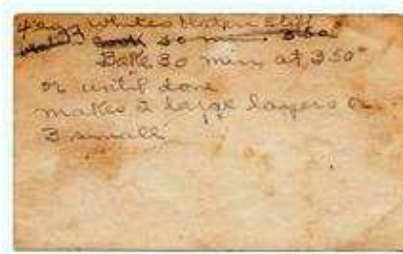 4 egg whites beaten stiff
30 min. 350
Bake 30 min at 350°
or until done
makes 2 large layers or
3 small